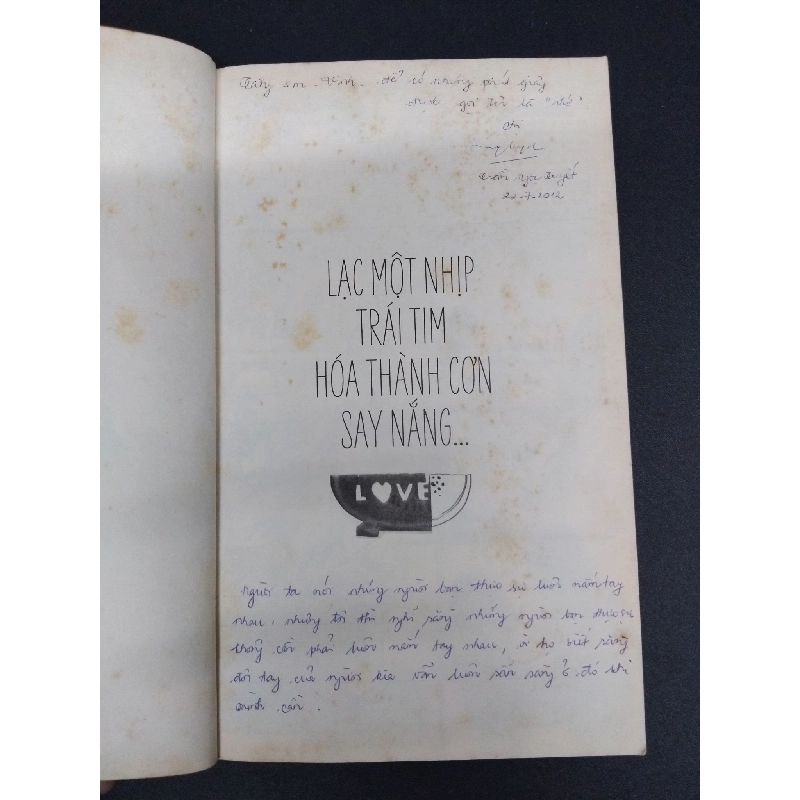 Tặng em - Vinh - để có những phút giây
được gọi tên là "nhớ"
Chị
Trần Ngọc Tuyết
22-7-2012
LẠC MỘT NHỊP
TRÁI TIM
HÓA THÀNH CƠN
SAY NẮNG...
LOVE
Người ta nói những người bạn thực sự luôn nắm tay
nhau, nhưng tôi thì nghĩ rằng những người bạn thực sự
không cần phải luôn nắm tay nhau, vì họ biết rằng
đôi tay của người kia vẫn luôn sẵn sàng ở đó khi
mình cần.